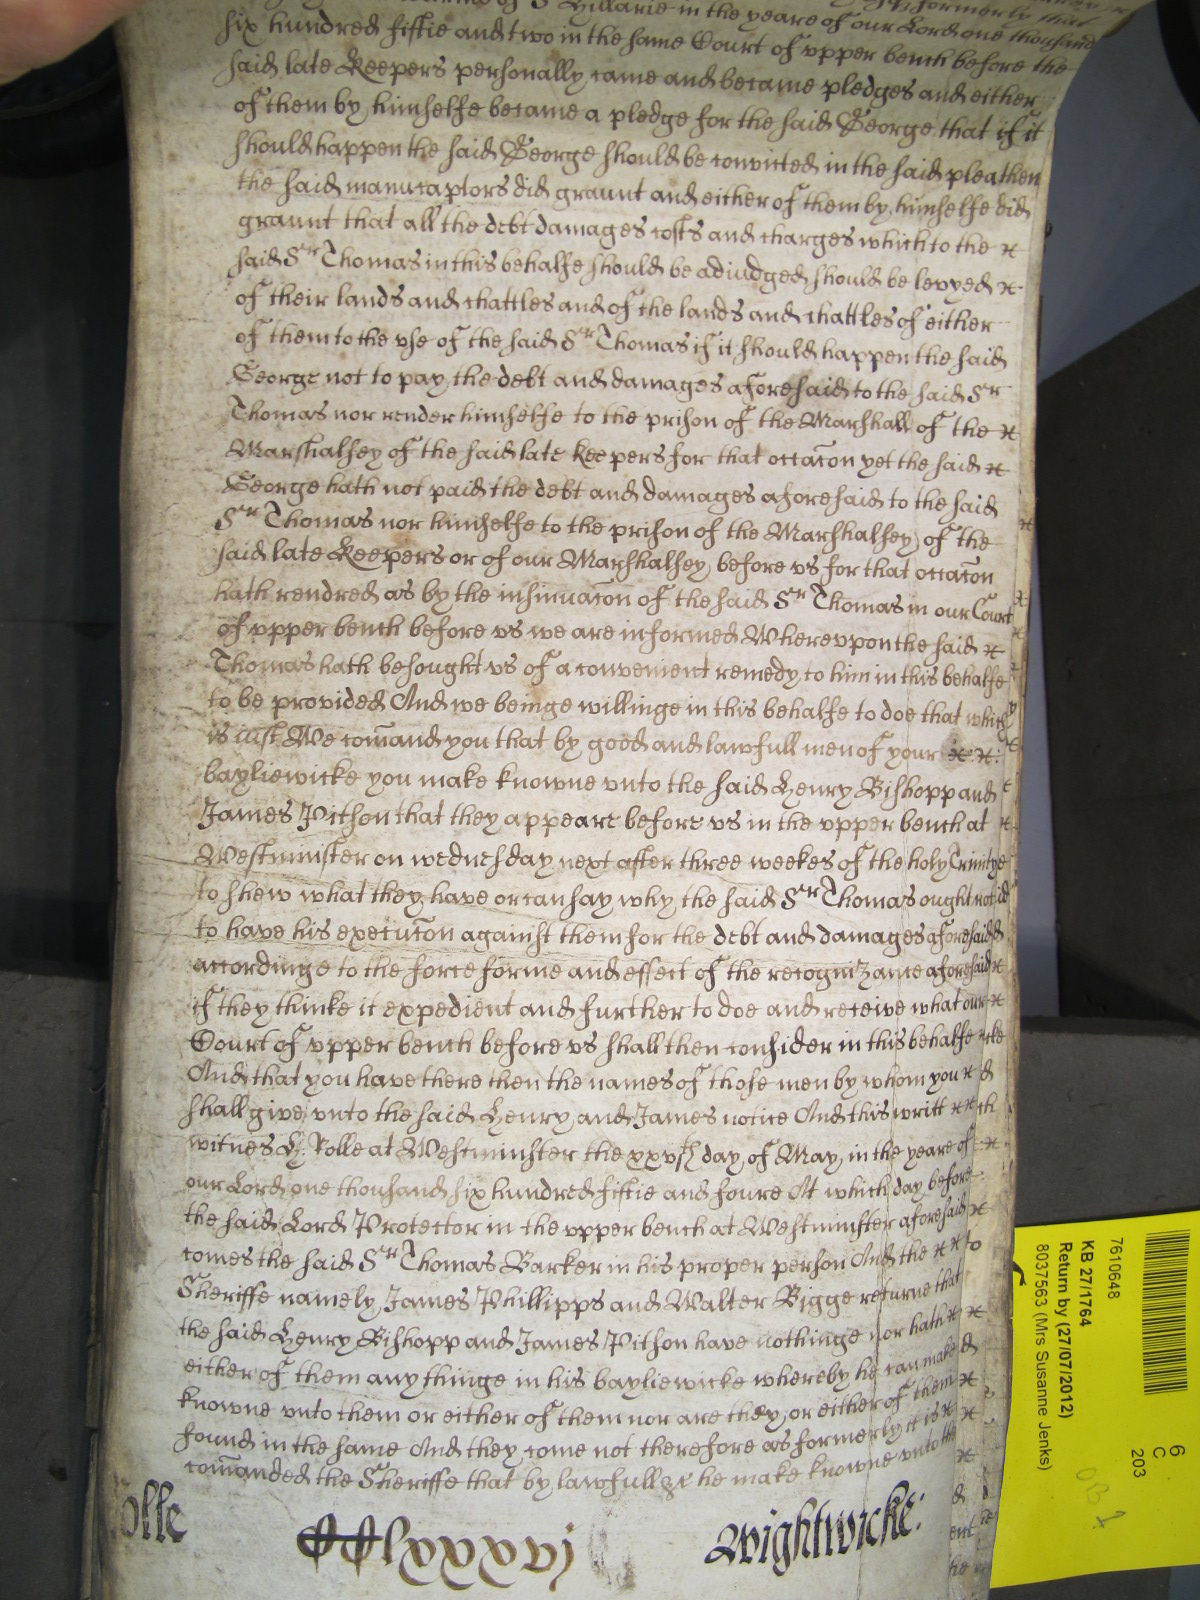 formerly that
Hillarie in the yeare of our Lord one thousand
six hundred fiftie and two in the same Court of vpper bench before the
said late Keepers personally came and became pledges and either
of them by himselfe became a pledge for the said George that if it
should happen the said George should be convicted in the said plea then
the said manucaptors did graunt and either of them by himselfe did
graunt that all the debt damages costs and charges which to the
said Sr Thomas in this behalfe should be adiudged should be levyed
of their lands and chattles and of the lands and chattles of either
of them to the vse of the said Sr Thomas if it should happen the said
George not to pay the debt and damages aforesaid to the said Sr
Thomas nor render himselfe to the prison of the Marshall of the
Marshalsey of the said late Keepers for that occacon yet the said
George hath not paid the debt and damages aforesaid to the said
Sr Thomas nor himselfe to the prison of the Marshalsey of the
said late Keepers or of our Marshalsey before vs for that occacon
hath rendred as by the insinuacon of the said Sr Thomas in our Court
of vpper bench before vs we are informed Wherevpon the said
Thomas hath besought vs of a convenient remedy to him in this behalfe
to be provided And we beinge willinge in this behalfe to doe that which
is iust We comand you that by good and lawfull men of your
bayliewicke you make knowne vnto the said Henry Bishopp and
James Pitson that they appeare before vs in the vpper bench at
Westminster on wednesday next after three weekes of the holy Trinitye
to shew what they have or can say why the said Sr Thomas ought not
to have his execucon against them for the debt and damages aforesaid
accordinge to the force forme and effect of the recognizance aforesaid
if they thinke it expedient and further to doe and receive what our
Court of vpper bench before vs shall then consider in this behalfe
And that you have there then the names of those men by whom you
shall give vnto the said Henry and James notice And this writt
witnes H. Rolle at Westminster the xxvjth day of May in the yeare of
our Lord one thousand six hundred fiftie and foure At which day before
the said Lord Protector in the vpper bench at Westminster aforesaid
comes the said Sr Thomas Barker in his proper person And the
Sheriffe namely James Phillipps and Walter Bigge returne that
the said Henry Bishopp and James Pitson have nothinge nor hath
either of them any thinge in his bayliewicke whereby he can make
knowne vnto them or either of them nor are they or either of them
found in the same And they come not therefore as formerly it is
comanded the Sheriffe that by lawfull &c he make knowne vnto the
olle CClxxxvj Wightwicke:
7610648
KB 27/1764
Return by (27/07/2012)
8037563 (Mrs Susanne Jenks)
6
C
203